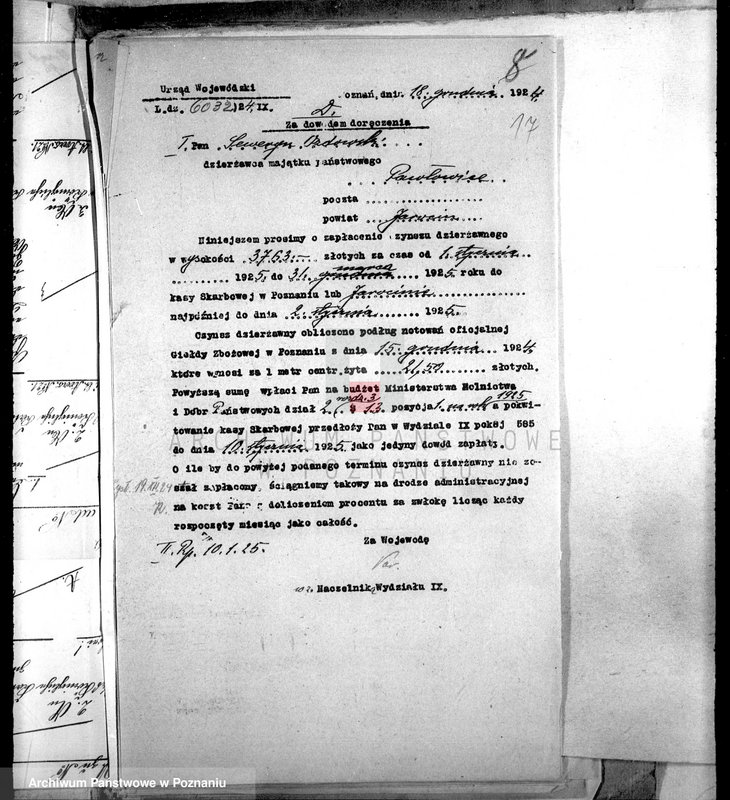 8
17
Urząd Wojewódzki
Poznań, dnia 18. grudnia 1924
L. dz. 6032/24. IX.
D.
Za dowodem doręczenia
I. Pan Seweryn
dzierżawca majątku państwowego
Pawłowice
poczta
powiat Jarocin
Niniejszem prosimy o zapłacenie czynszu dzierżawnego
w wysokości 3763.— złotych za czas od 1. stycznia
1925. do 31. grudnia marca 1925. roku do
kasy Skarbowej w Poznaniu lub Jarocinie
najpóźniej do dnia 2. stycznia 1925.
Czynsz dzierżawny obliczono podług notowań oficjalnej
Giełdy Zbożowej w Poznaniu z dnia 15. grudnia 1924
które wynosi za 1 metr centr. żyta 21,50 złotych.
Powyższą sumę wpłaci Pan na budżet Ministerstwa Rolnictwa
rozdz. 3 1925
i Dóbr Państwowych dział 2. § 13. pozycja 1. na rok a pokwi-
towanie kasy Skarbowej przedłoży Pan w Wydziale IX pokój 585
do dnia 10. stycznia 1925 jako jedyny dowód zapłaty.
O ile by do powyżej podanego terminu czynsz dzierżawny nie zo-
szał zapłacony, ściągniemy takowy na drodze administracyjnej
na koszt Pana z doliczeniem procentu za zwłokę licząc każdy
rozpoczęty miesiąc jako całość.
Za Wojewodę
II. Rp. 10.1.25.
Naczelnik Wydziału IX.
ARCHIWUM PAŃSTWOWE
W POZNANIU
Archiwum Państwowe w Poznaniu